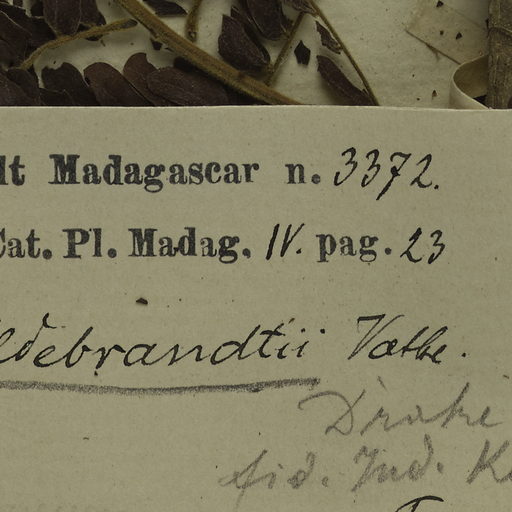 lt Madagascar n. 3372.
Cat. Pl. Madag. IV. pag. 23
ldebrandtii Vatke.
Drake
fid. Ind. K